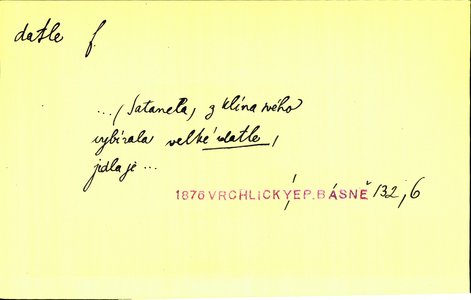 datle f.
...(Satanela) z klína svého
vybírala velké datle,
jidla je ...
1876 VRCHLICKÝ, EP. BÁSNĚ 132, 6